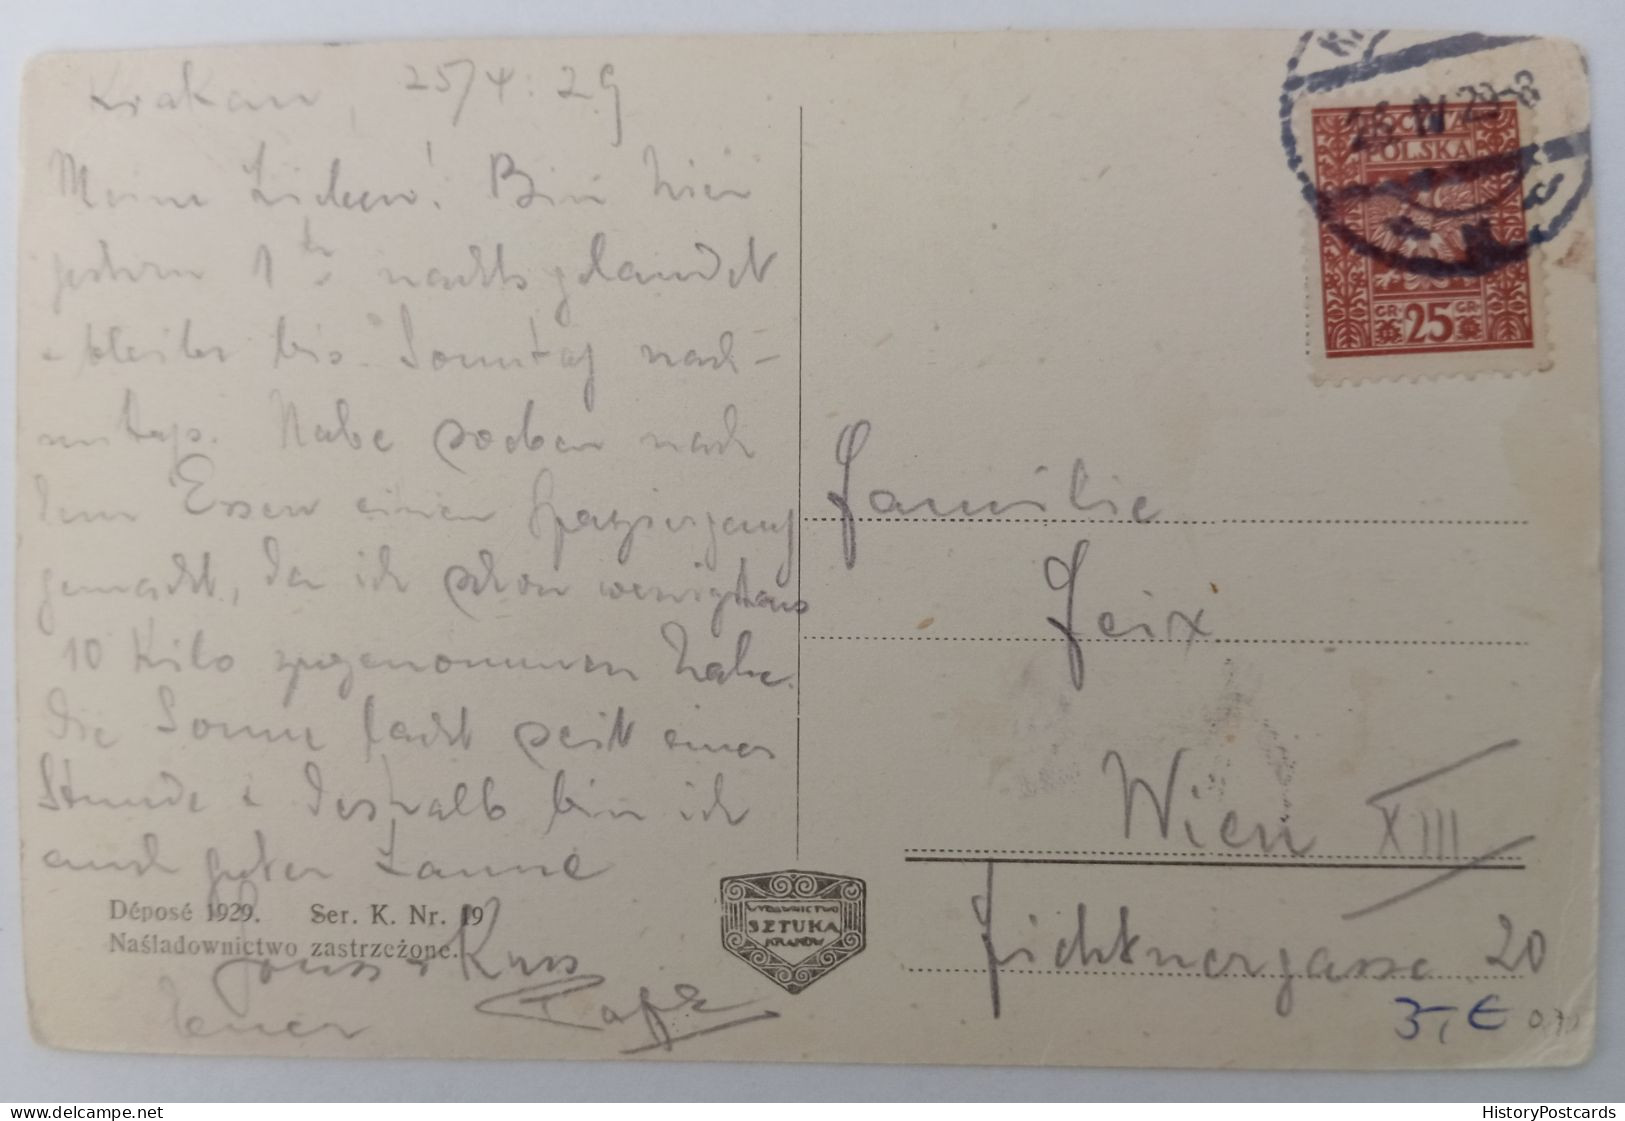 Krakau, 25/4. 29
Meine Lieben! Bin hier
gestern 1h nachts gelandet
u bleibe bis Sonntag nach-
mittags. Habe soeben nach
dem Essen einen Spatziergang
gemacht, da ich schon wenigstens
10 Kilo zugenommen habe.
Die Sonne lacht seit einer
Stunde & deshalb bin ich
auch guter Laune
Gruss & Kuss
Euer
Déposé 1929. Ser. K. Nr. 19
Naśladownictwo zastrzeżone.
WYDAWNICTWO
SZTUKA
KRAKÓW
26 IV 29-8
POCZTA
POLSKA
GR. 25 GR.
Familie
Zeix
Wien XIII
Fichtnergasse 20
3,- €
HistoryPostcards